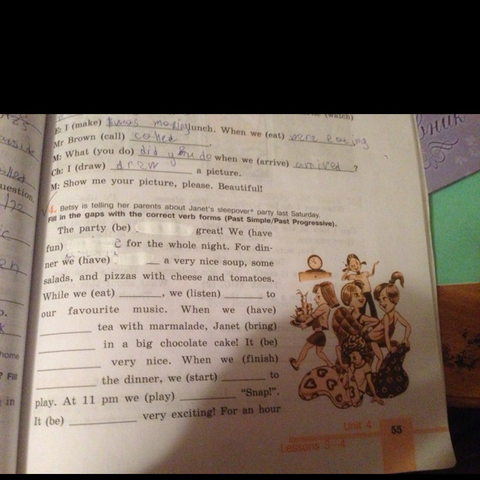 E: I (make) lunch. When we (eat)
Mr Brown (call) called.
M: What (you do) did you do when we (arrive) arrived?
Ch: I (draw) drew a picture.
M: Show me your picture, please. Beautiful!
4. Betsy is telling her parents about Janet's sleepover* party last Saturday.
Fill in the gaps with the correct verb forms (Past Simple/Past Progressive).
The party (be) great! We (have
fun) for the whole night. For din-
ner we (have) a very nice soup, some
salads, and pizzas with cheese and tomatoes.
While we (eat) ________, we (listen) ________ to
our favourite music. When we (have)
________ tea with marmalade, Janet (bring)
________ in a big chocolate cake! It (be)
________ very nice. When we (finish)
________ the dinner, we (start) ________ to
play. At 11 pm we (play) ________ "Snap!".
It (be) ________ very exciting! For an hour
Unit 4
Lessons 3–4
55
home
? Fill
e in